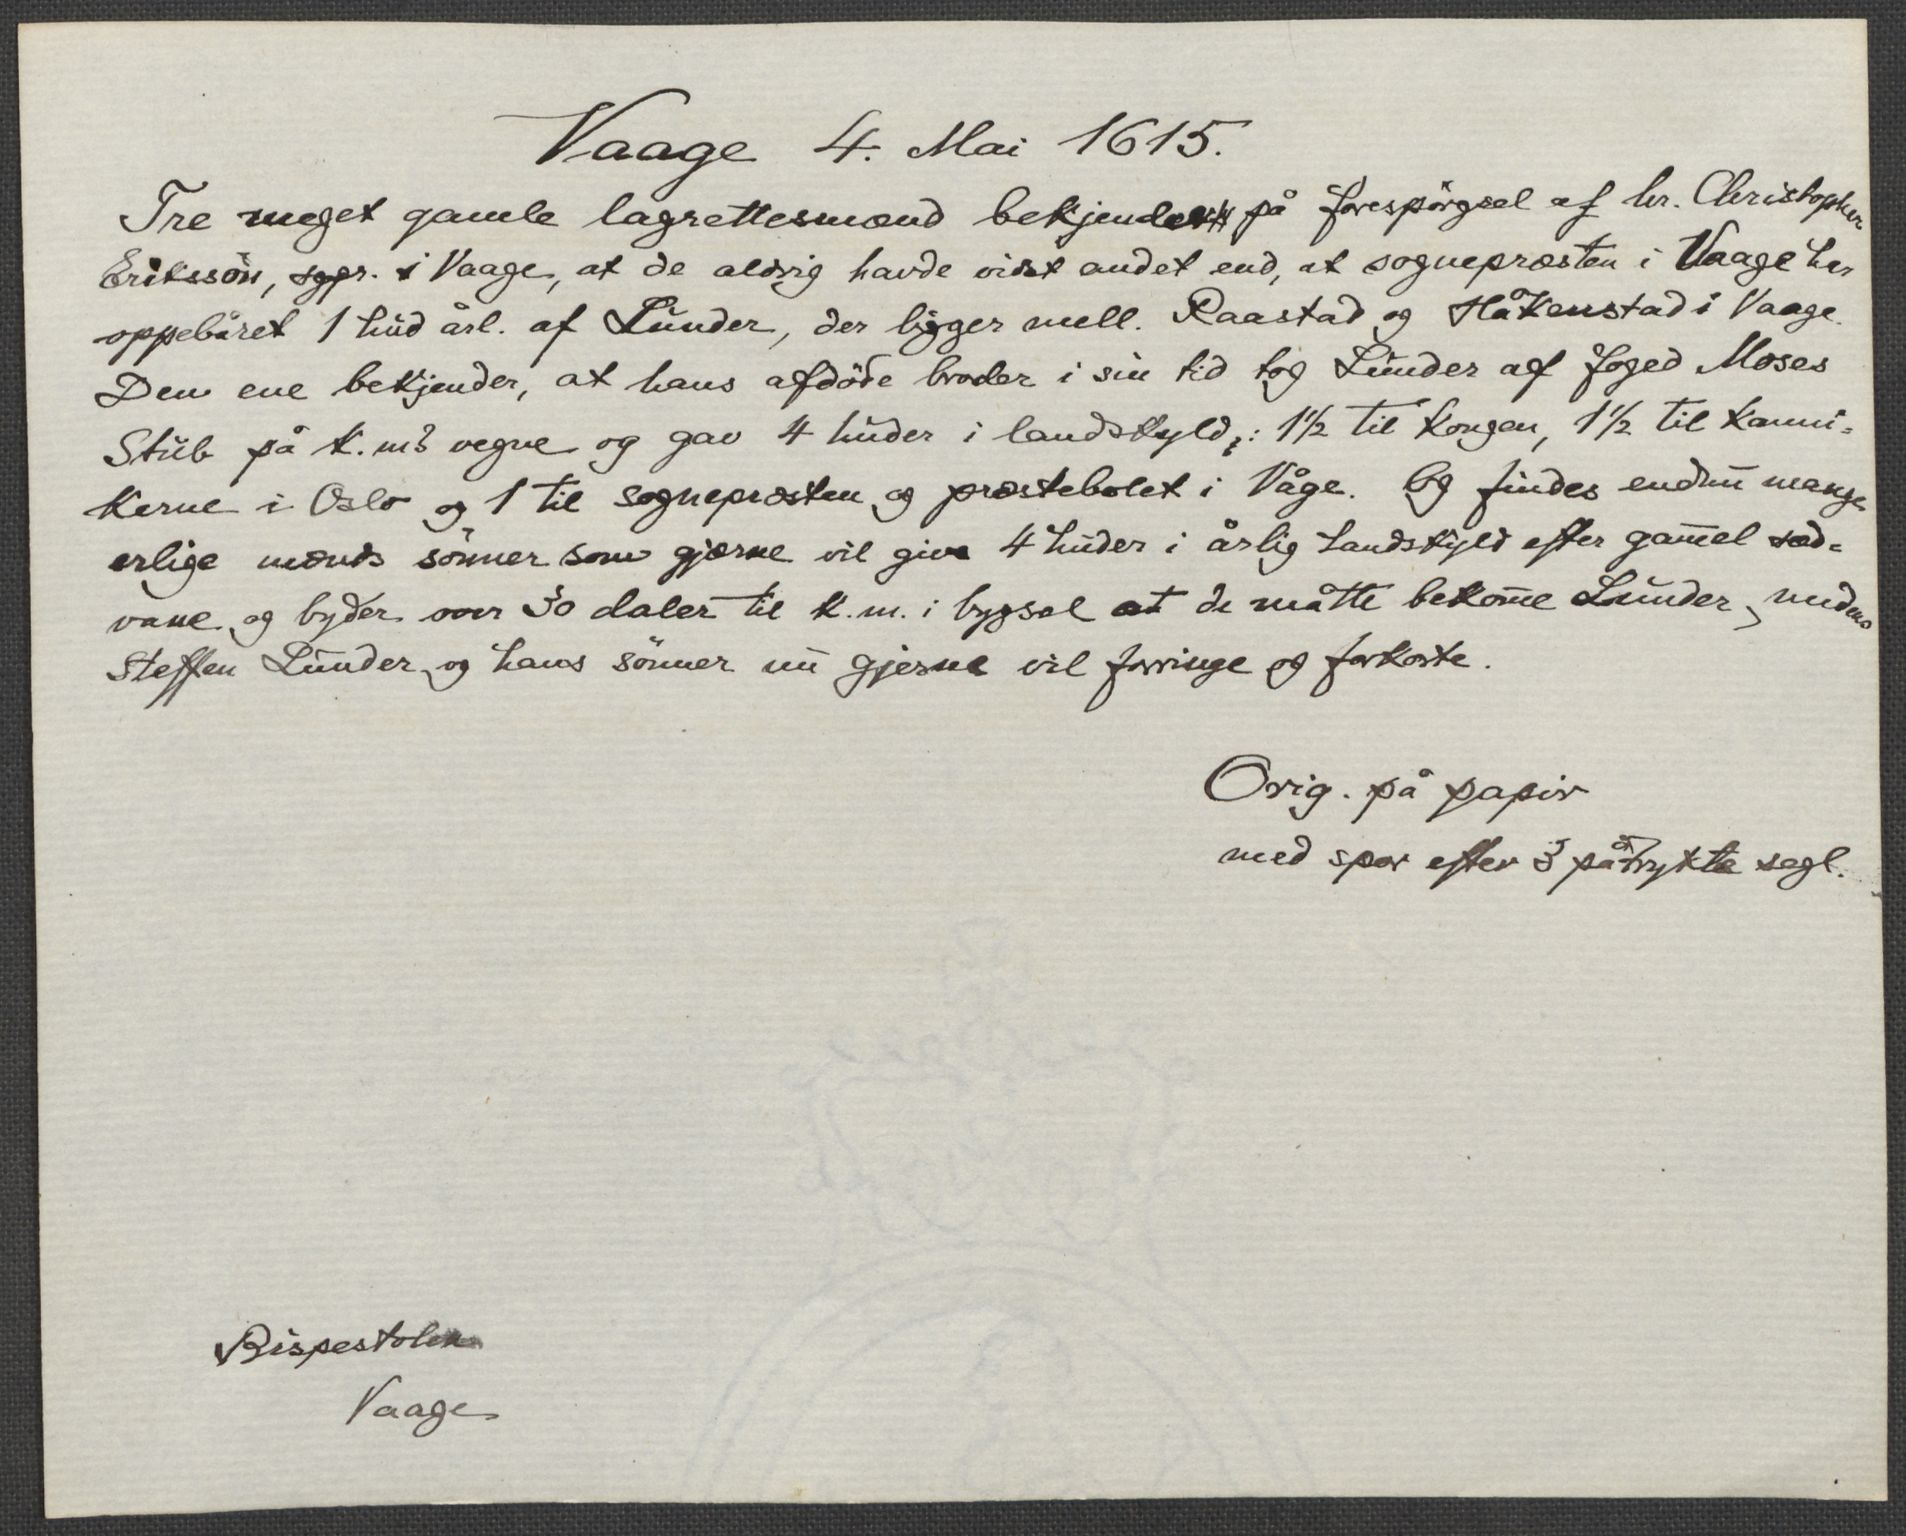 Vaage 4. Mai 1615.
Tre meget gamle lagrettesmænd bekjender på forespörgsel af hr. Christopher
Erikssön, sgpr. i Vaage, at de aldrig havde vidst andet end, at sognepræsten i Vaage har
oppebåret 1 hud årl. af Lunder, der ligger mell. Raastad og Håkenstad i Vaage.
Den ene bekjender, at hans afdöde broder i sin tid tog Lunder af foged Moses
Stub på k.ms vegne og gav 4 huder i landskyld: 1½ til kongen, 1½ til kanni-
kerne i Oslo og 1 til sognepræsten og præstebolet i Våge. Og findes endnu mange
erlige mænds sönner som gjærne vil give 4 huder i årlig landskyld efter gam̄el sæd-
vane og byder over 30 daler til k.m. i bygsel at de måtte bekom̄e Lunder, medens
Steffen Lunder og hans sönner nu gjerne vil forringe og forkorte.
Orig. på papir
med spor efter 3 påtrykte segl.
Bispestolen
Vaage